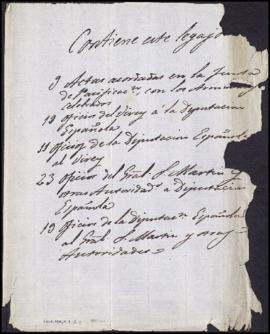 Contiene este legajo
9 Actas acordadas en la Junta
de Pacificacn, con los
celebrados
19 oficios del Virey á la Diputacion
Española
11 oficios de la Diputacion Española
al Virey
23 oficios del Gral. Sn Martin y
otras Autoridads a Diputacion
Española
19 Oficios de la Diputacn Española
al Gral. Sn Martin y otras
Autoridades